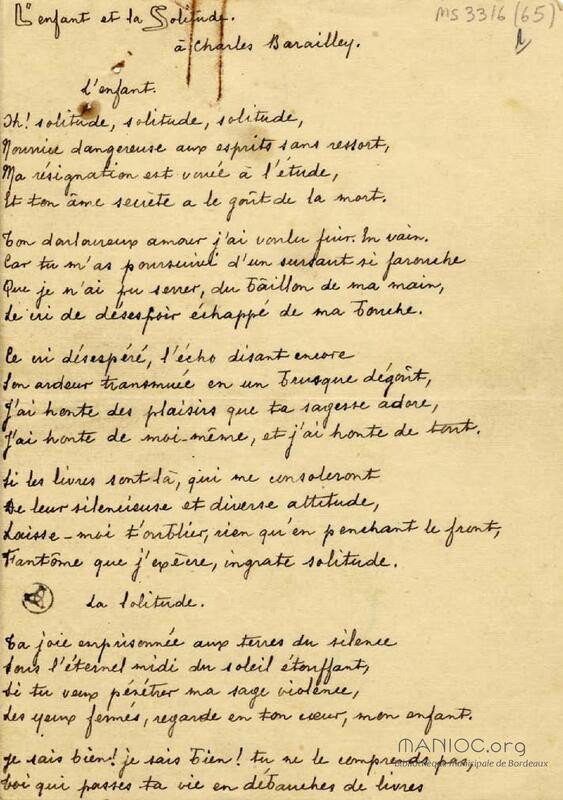 L'enfant et la Solitude.
MS 3316 (65)
à Charles Barailley.
L'enfant.
Oh! solitude, solitude, solitude,
Nourrice dangereuse aux esprits sans ressort,
Ma résignation est vouée à l'étude,
Et ton âme secrète a le goût de la mort.
Ton douloureux amour j'ai voulu fuir. En vain.
Car tu m'as poursuivi d'un sursaut si farouche
Que je n'ai pu serrer, du bâillon de ma main,
Le cri de désespoir échappé de ma bouche.
Ce cri désespéré, l'écho disant encore
Son ardeur transmuée en un brusque dégoût,
J'ai honte des plaisirs que ta sagesse adore,
J'ai honte de moi-même, et j'ai honte de tout.
Si les livres sont là, qui me consoleront
De leur silencieuse et diverse attitude,
Laisse-moi t'oublier, rien qu'en penchant le front,
Fantôme que j'exècre, ingrate solitude.
La Solitude.
Ta joie emprisonnée aux terres du silence
Sous l'éternel midi du soleil étouffant,
Si tu veux pénétrer ma sage violence,
Les yeux fermés, regarde en ton cœur, mon enfant.
Je sais bien! je sais bien! tu ne le comprends pas,
Toi qui passes ta vie en débauches de livres
MANIOC.org
Bibliothèque municipale de Bordeaux